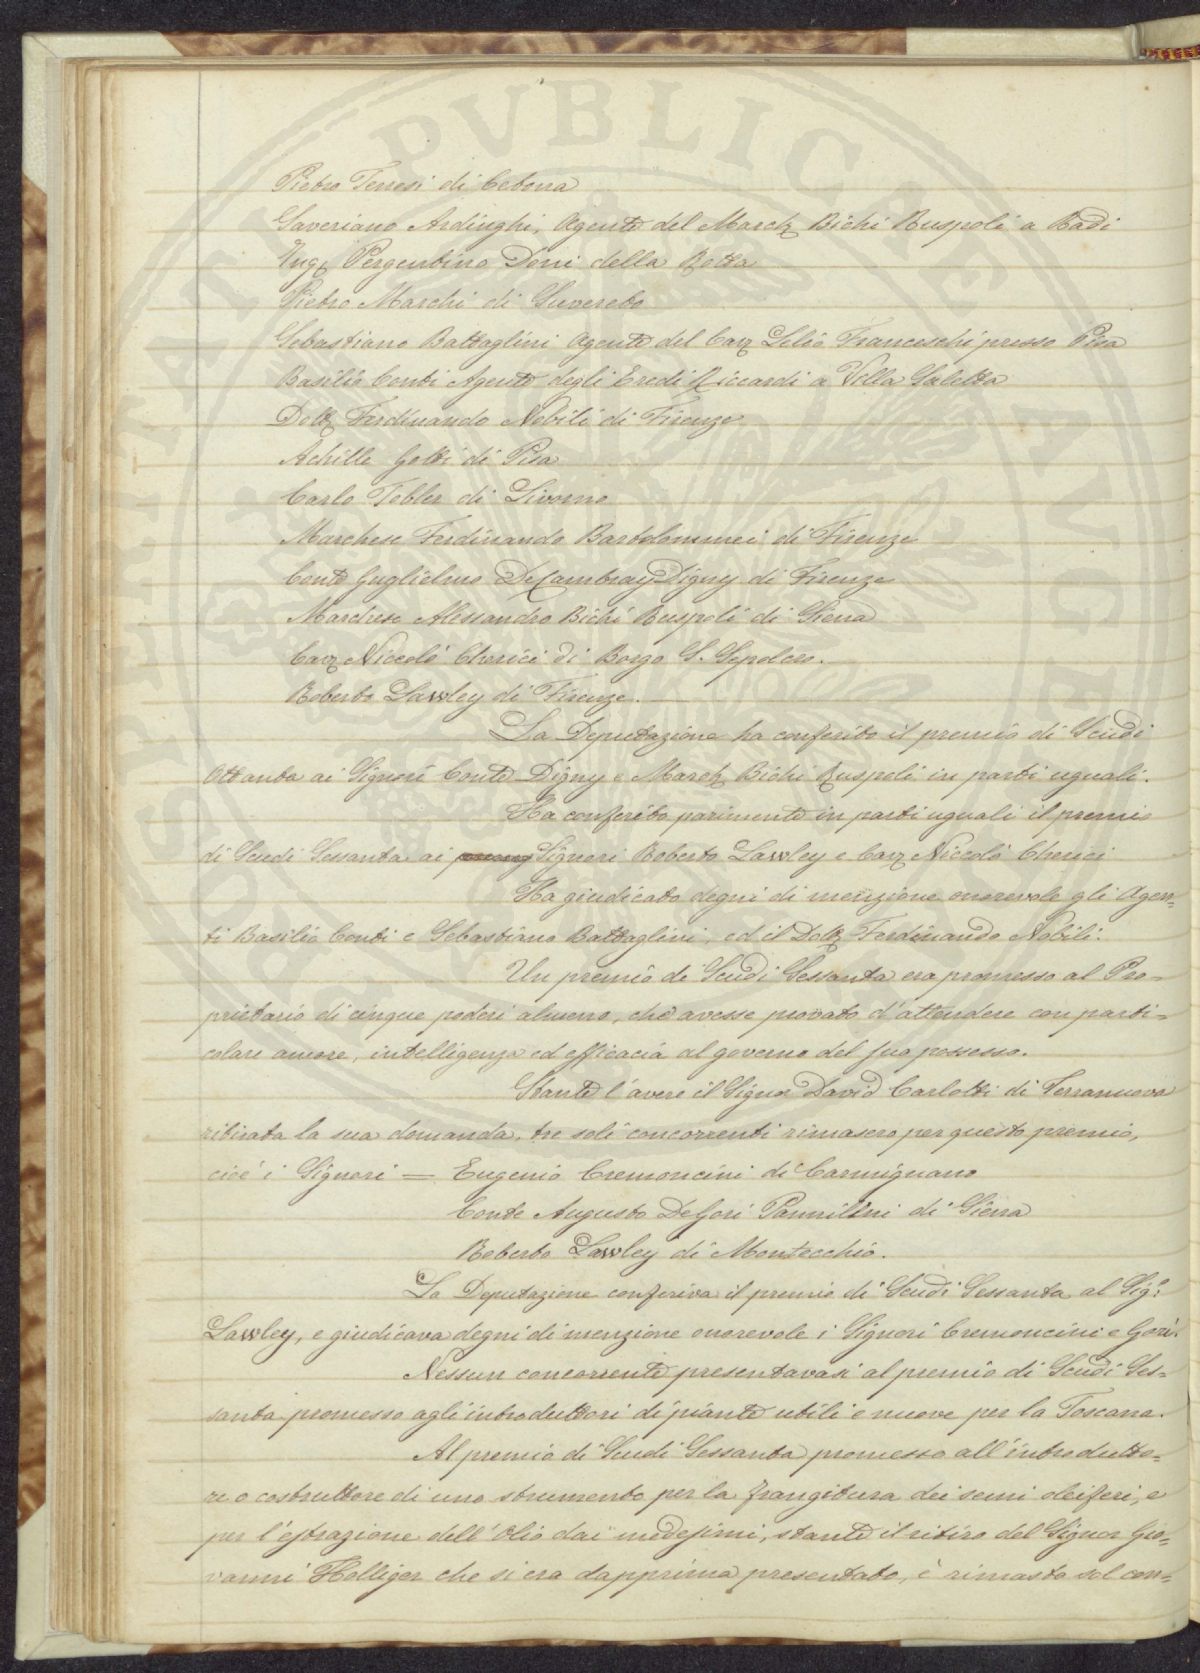 Pietro Terrosi di Cetona
Saveriano Ardinghi, Agente del March. Bichi Ruspoli a Radi
Ing. Pergentino Doni della Rotta
Pietro Marchi di Suvereto
Sebastiano Battaglini Agente del Cav. Lelio Franceschi presso Pisa
Basilio Conti Agente degli Eredi Riccardi a Villa Saletta
Dott. Ferdinando Nobili di Firenze
Achille Gotti di Pisa
Carlo Tobler di Livorno
Marchese Ferdinando Bartolommei di Firenze
Conte Guglielmo DeCambray Digny di Firenze
Marchese Alessandro Bichi Ruspoli di Siena
Cav. Niccolò Cherici di Borgo S. Sepolcro.
Roberto Lawley di Firenze.
La Deputazione ha conferito il premio di Scudi
Ottanta ai Signori Conte Digny e March. Bichi Ruspoli in parti uguali.
Ha conferito parimente in parti uguali il premio
di Scudi Sessanta ai Signori Roberto Lawley e Cav. Niccolò Cherici
Ha giudicato degni di menzione onorevole gli Agen=
ti Basilio Conti e Sebastiano Battaglini, ed il Dott. Ferdinando Nobili.
Un premio di Scudi Sessanta era promesso al Pro=
prietario di cinque poderi almeno, che avesse provato d'attendere con parti=
colare amore, intelligenza ed efficacia al governo del suo possesso.
Stante l'avere il Signor David Carlotti di Terranuova
ritirata la sua domanda, tre soli concorrenti rimasero per questo premio,
cioè i Signori = Eugenio Cremoncini di Carmignano
Conte Augusto DeGori Pannilini di Siena
Roberto Lawley di Montecchio.
La Deputazione conferiva il premio di Scudi Sessanta al Sig.r
Lawley, e giudicava degni di menzione onorevole i Signori Cremoncini e Gori.
Nessun concorrente presentavasi al premio di Scudi Ses=
santa promesso agli introduttori di piante utili e nuove per la Toscana.
Al premio di Scudi Sessanta promesso all'introdutto=
re o costruttore di uno strumento per la frangitura dei semi oleiferi, e
per l'estrazione dell'Olio dai medesimi, stante il ritiro del Signor Gio=
vanni Holliger che si era dapprima presentato, è rimasto sol con=